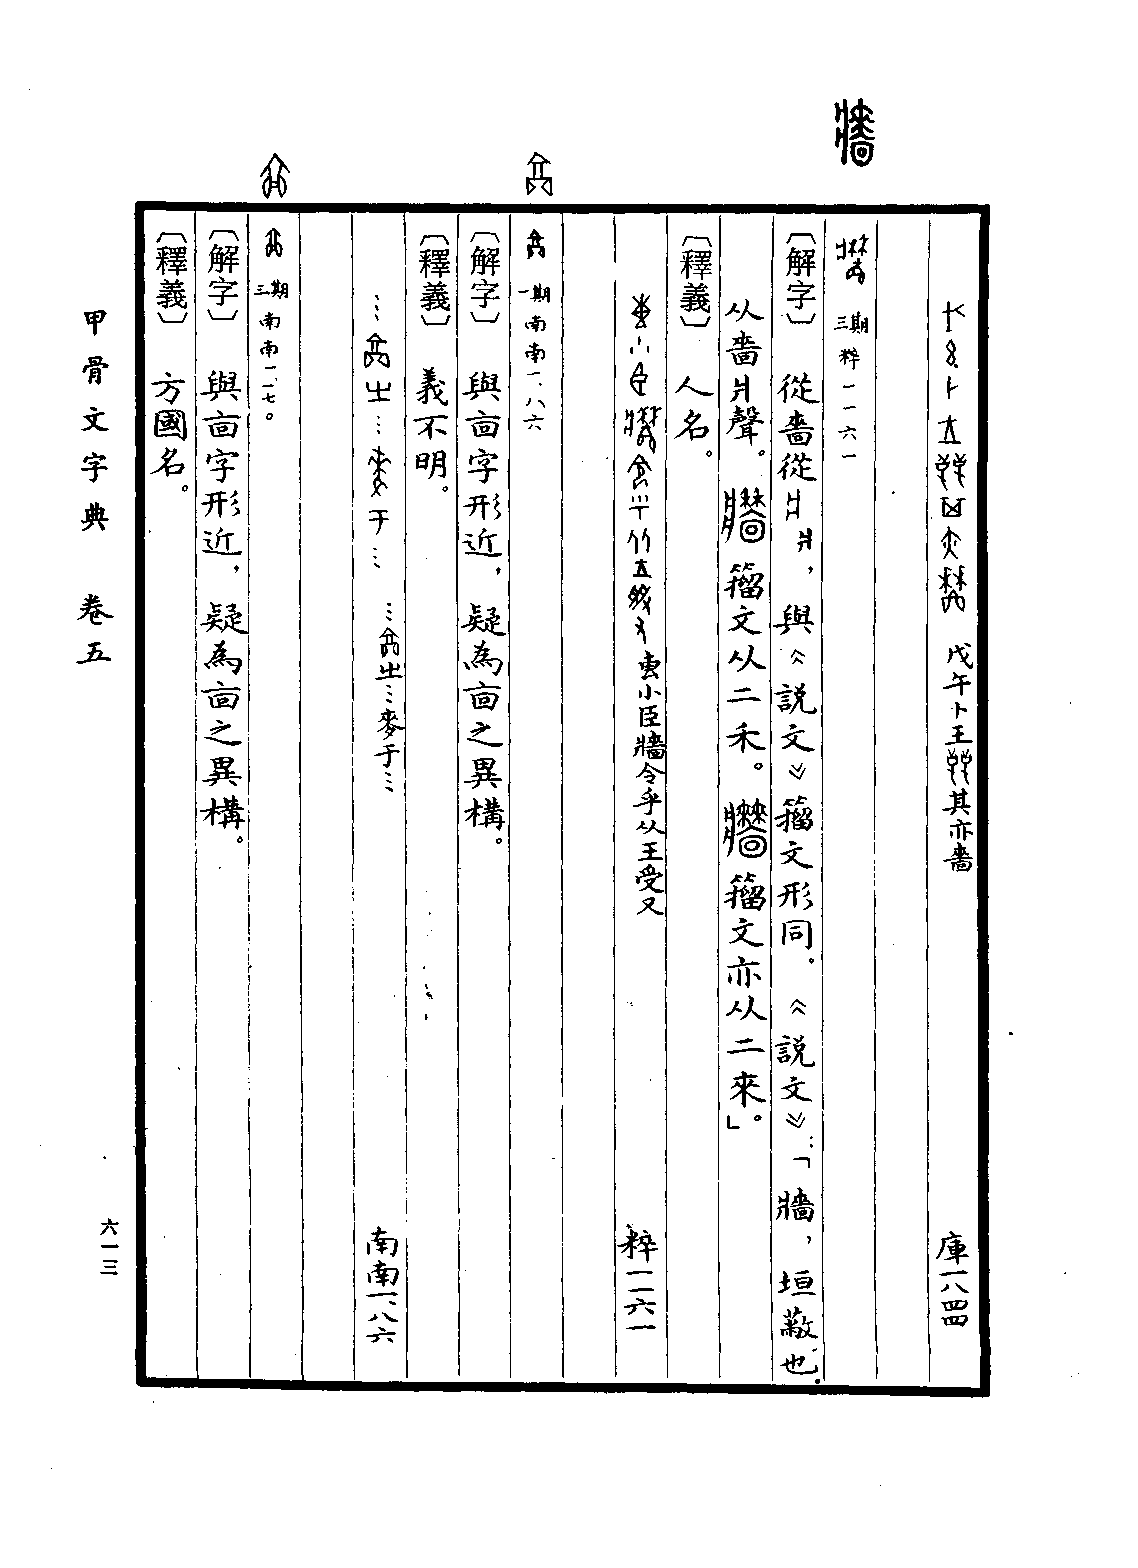 戊午卜王其亦嗇 庫一八四四
三期 粹一一六一
〔解字〕 從嗇從爿,與《說文》籀文形同。《說文》:「牆,垣蔽也.
从嗇爿聲。籀文从二禾。籀文亦从二來」。
〔釋義〕 人名。
叀小臣牆令乎从王受又 粹一一六一
一期 南南一.八六
〔解字〕 與㐭字形近,疑為㐭之異構。
〔釋義〕 義不明。
…㞢…麥于… 南南一.八六
三期 南南一.一七。
〔解字〕 與㐭字形近,疑為㐭之異構。
〔釋義〕 方國名。
甲骨文字典 卷五
六一三